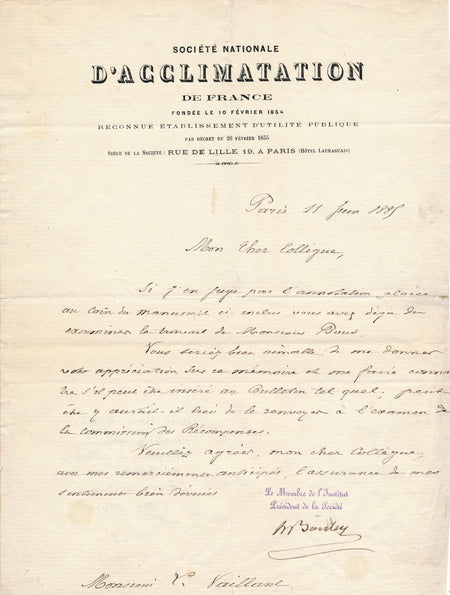 SOCIÉTÉ NATIONALE
D'ACCLIMATATION
DE FRANCE
FONDÉE LE 10 FÉVRIER 1854
RECONNUE ÉTABLISSEMENT D'UTILITÉ PUBLIQUE
PAR DÉCRET DU 26 FÉVRIER 1855
SIÈGE DE LA SOCIÉTÉ : RUE DE LILLE 19, A PARIS (HÔTEL LAURAGUAIS)
Paris 11 Juin 188
Mon cher Collègue,
Si j'en juge par l'annotation placée
au coin du manuscrit ci inclus vous avez déjà du
examiner le travail de Monsieur
Vous seriez bien aimable de me donner
votre appréciation sur ce mémoire et me faire connai
tre s'il peut être inséré au Bulletin tel quel; peut
être y aurait-il lieu de le renvoyer à l'examen de
la commission des Récompenses.
Veuillez agréer, mon cher Collègue,
avec mes remerciements anticipés, l'assurance de mes
sentiments bien dévoués
Le Membre de l'Institut
Président de la Société
Monsieur Vaillant